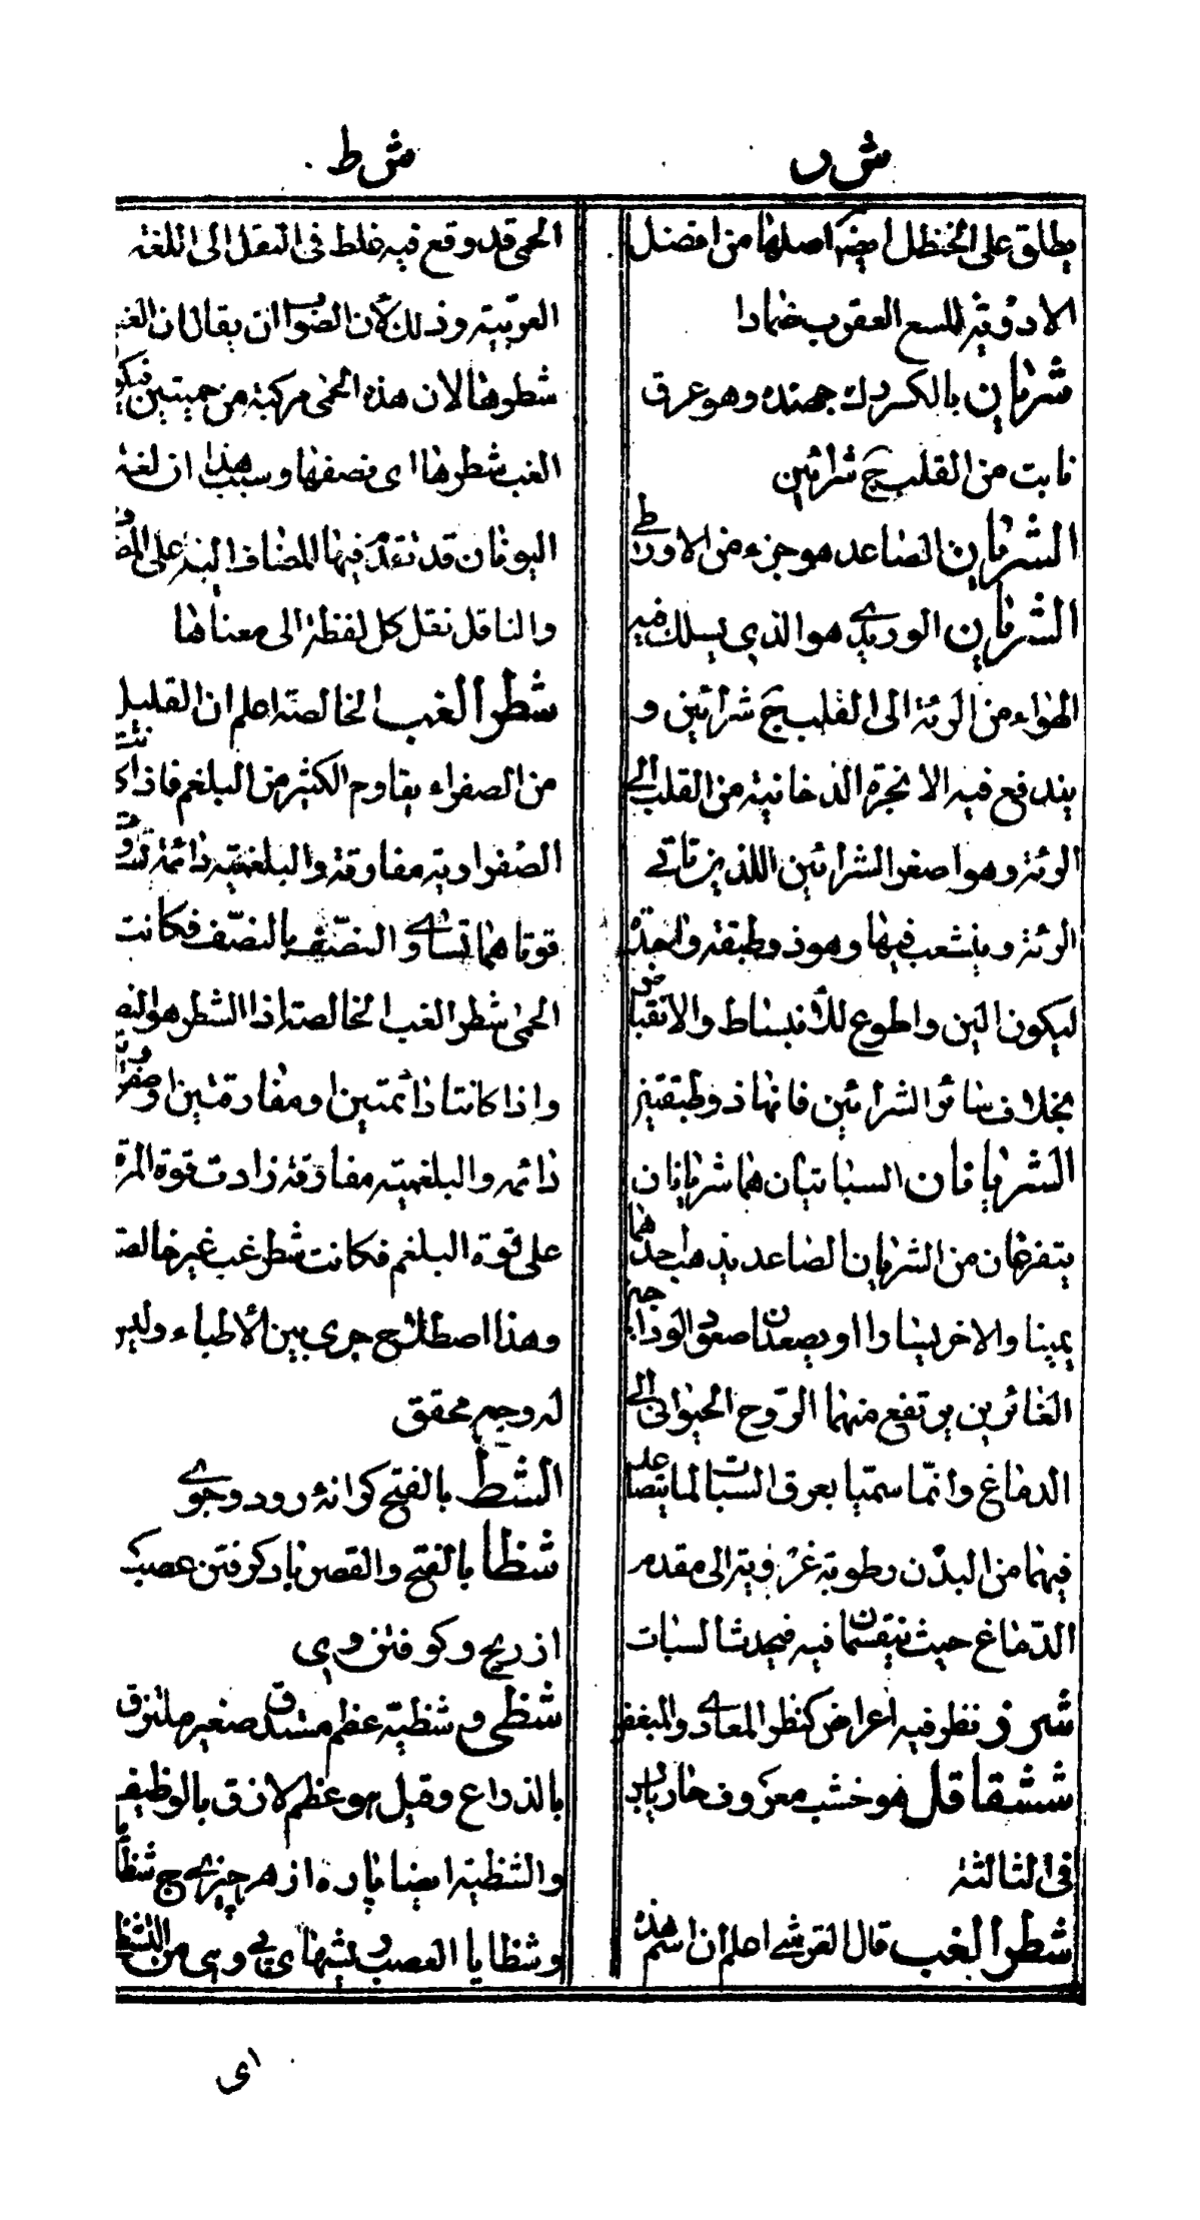 ش ر
يطلق على الحنظل ايضا اصلها من افضل
الادوية للسع العقرب ضمادا
شريان بالكسر رك جهنده وهو عرق
نابت من القلب ج شرائين
الشريان الصاعد هو جزء من الاورطى
الشريان الوريدي هو الذي يسلك فيه
الهواء من الرئة الى القلب ج شرائين و
يندفع فيه الابخرة الدخانية من القلب الى
الرئة وهو اصغر الشرائين اللذين تاتي
الرئة وينشعب فيها وهو ذو طبقة واحدة
ليكون الين واطوع للانبساط والانقباض
بخلاف سائر الشرائين فانها ذو طبقتين
الشريانان السباتيان هما شريانان
يتفرعان من الشريان الصاعد يذهب احدهما
يمينا والاخر يسارا ويصعدان صعود الوداجين
الغائرين يرتفع منهما الروح الحيوانى الى
الدماغ وانما سميا بعرق السبات لما يتصاعد
فيهما من البدن رطوبة غروية الى مقدم
الدماغ حيث ينقسمان فيه فيحدث السبات
شرز نظر فيه اعراض كنظر المعادي والمبغض
ششقاقل هو خشب معروف حار يابس
فى الثالثة
شطر الغب قال القرشي اعلم ان اسم هذه
ش ط
الحمى قد وقع فيه غلط فى النقل الى اللغة
العربية وذلك لان الصواب ان يقال ان الغب
شطرها لان هذه الحمى مركبة من حميتين فيكون
الغب شطرها اى نصفها وسبب هذا ان لغة
اليونان قد تقدم فيها المضاف اليه على المضاف
والناقل نقل كل لفظة الى معناها
شطر الغب الخالصة اعلم ان القليل
من الصفراء يقاوم الكثير من البلغم فاذا كانت
الصفراوية مفارقة والبلغمية دائمة تساوت
قوتاهما تساوي النصف بالنصف فكانت
الحمى شطر الغب الخالصة اذ الشطر هو النصف
واذا كانتا دائمتين او مفارقتين او صفراوية
دائمة والبلغمية مفارقة زادت قوة المرة
على قوة البلغم فكانت شطر غب غير خالصة
وهذا اصطلاح جرى بين الاطباء وليس
له وجه محقق
الشط بالفتح كرانۀ رود وجوي
شظا بالفتح والقصر باد كرفتن عصب
از ريح وكوفتن وى
شظى و شظية عظم مستدق صغير ملتزق
بالذراع وقيل هو عظم لازق بالوظيف
والشظية ايضا پاره از هر چيزى ج شظايا
وشظايا العصب ريشهاى پى وهى من التشظى
اى